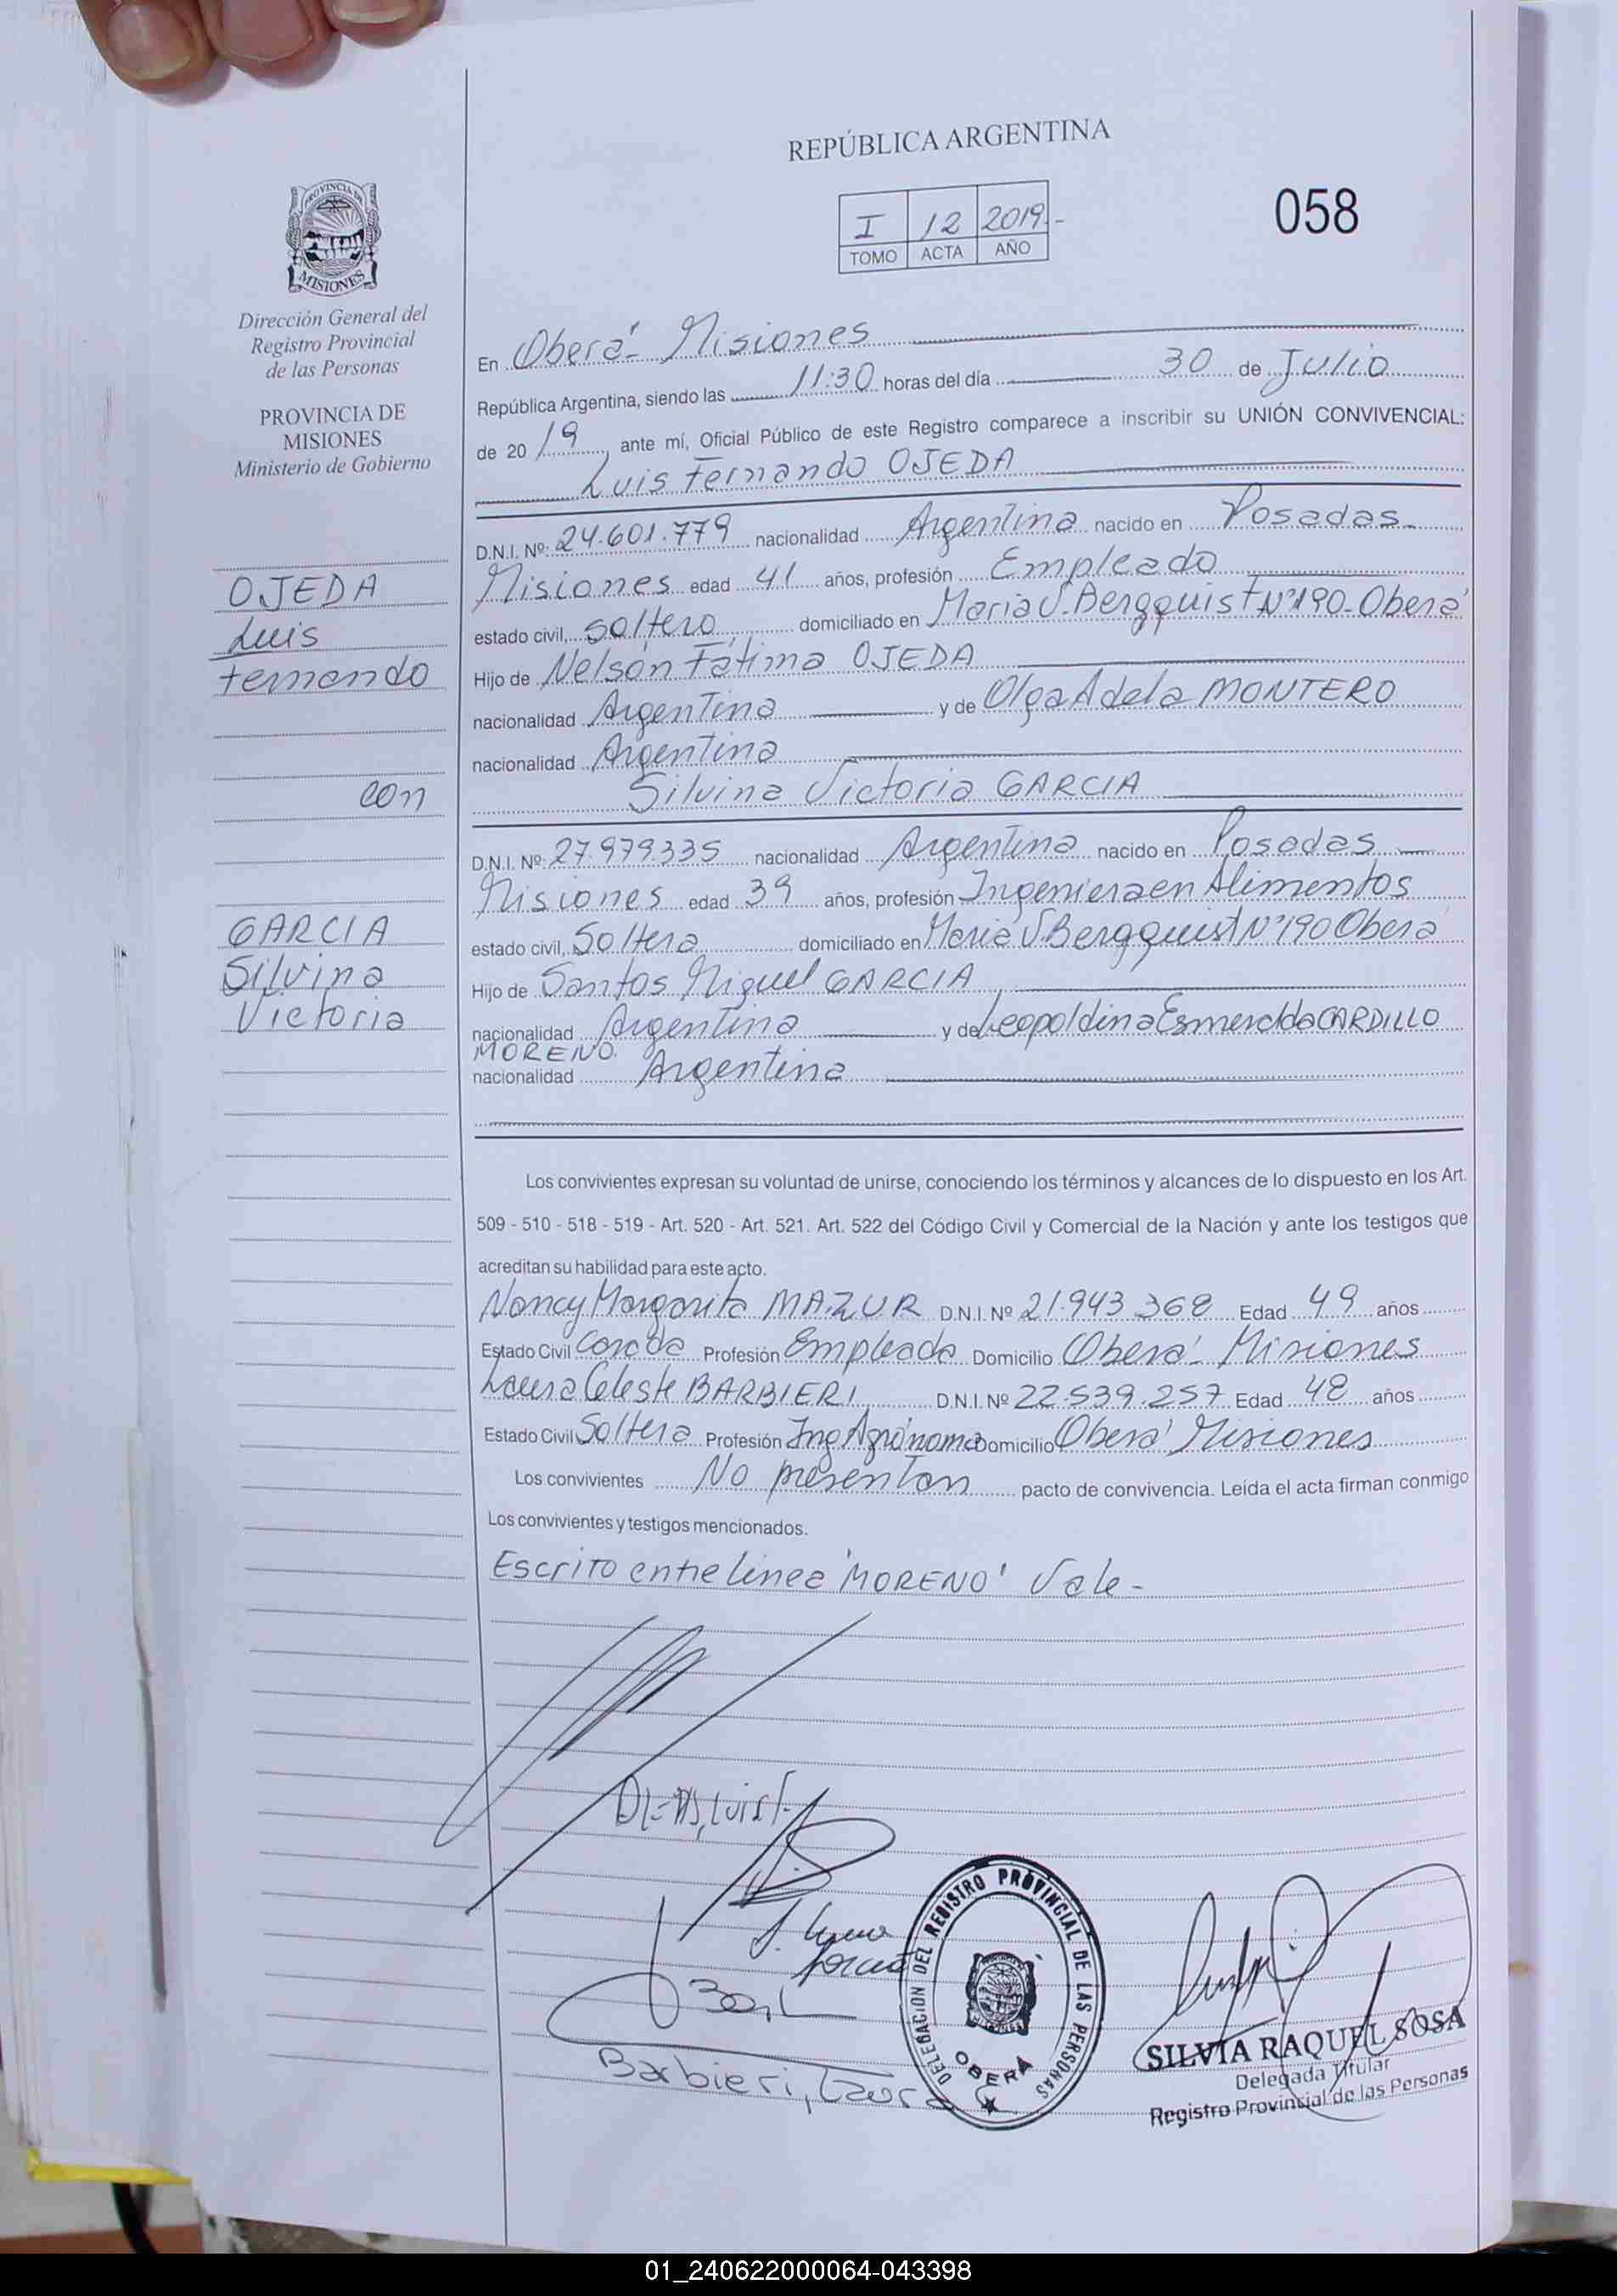 REPÚBLICA ARGENTINA
058
I 12 2019.-
TOMO ACTA AÑO
PROVINCIA DE
MISIONES
Dirección General del
Registro Provincial
de las Personas
PROVINCIA DE
MISIONES
Ministerio de Gobierno
OJEDA
Luis
Fernando
con
GARCIA
Silvina
Victoria
En Oberá - Misiones
República Argentina, siendo las 11:30 horas del día 30 de Julio
de 2019, ante mí, Oficial Público de este Registro comparece a inscribir su UNIÓN CONVIVENCIAL:
Luis Fernando OJEDA
D.N.I. Nº: 24.601.779 nacionalidad Argentina nacido en Posadas
Misiones edad 41 años, profesión Empleado
estado civil, Soltero domiciliado en Maria V. Bergquist Nº190-Oberá
Hijo de Nelson Fátima OJEDA
nacionalidad Argentina y de Olga Adela MONTERO
nacionalidad Argentina
Silvina Victoria GARCIA
D.N.I. Nº: 27.979.335 nacionalidad Argentina nacido en Posadas
Misiones edad 39 años, profesión Ingeniera en Alimentos
estado civil, Soltera domiciliado en Maria V. Bergquist Nº190 Oberá
Hijo de Santos Miguel GARCIA
nacionalidad Argentina y de Leopoldina Esmeralda CARDILLO
MORENO.
nacionalidad Argentina
Los convivientes expresan su voluntad de unirse, conociendo los términos y alcances de lo dispuesto en los Art.
509 - 510 - 518 - 519 - Art. 520 - Art. 521. Art. 522 del Código Civil y Comercial de la Nación y ante los testigos que
acreditan su habilidad para este acto.
Nancy Margarita MAZUR D.N.I. Nº 21.943.368 Edad 49 años
Estado Civil Casada Profesión Empleada Domicilio Oberá - Misiones
Laura Celeste BARBIERI D.N.I. Nº 22.539.257 Edad 48 años
Estado Civil Soltera Profesión Ing Agrónoma Domicilio Oberá Misiones
Los convivientes No presentan pacto de convivencia. Leída el acta firman conmigo
Los convivientes y testigos mencionados.
Escrito entre linea 'MORENO' Vale -
Barbieri, Laura
DELEGACION DEL REGISTRO PROVINCIAL DE LAS PERSONAS
OBERÁ
SILVIA RAQUEL SOSA
Delegada Titular
Registro Provincial de las Personas
01_240622000064-043398